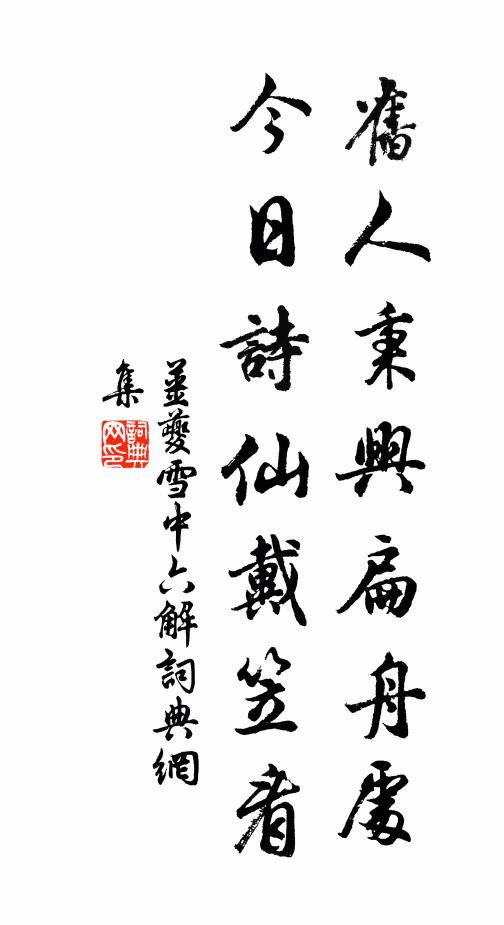 舊人秉興扁舟處
今日詩仙戴笠看
薑夔雪中六解詞典網
集
詞典
网印